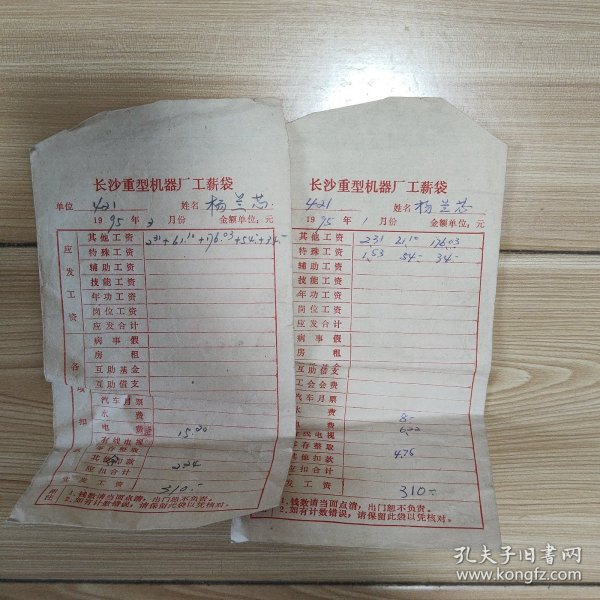 长沙重型机器厂工薪袋
单位 421 姓名 杨兰芯
1995年2月份 金额单位:元
应发工资
其他工资
特殊工资
辅助工资
技能工资
年功工资
岗位工资
应发合计
各项扣款
病事假
房租
互助基金
互助借支
汽车月票
水费
电费 15.20
有线电视
零存整取
其他扣款
应扣合计 224
实发工资 310.-
1.钱数请当面点清,出门恕不负责。
2.如有计数错误,请保留此袋以凭核对。
长沙重型机器厂工薪袋
421 姓名 杨兰芯
1995年1月份 金额单位:元
其他工资 231 21.10 176.03
特殊工资 1.53 54- 34-
辅助工资
技能工资
年功工资
岗位工资
应发合计
病事假
房租
互助基金
互助借支
工会会费
汽车月票
水费 8.-
电费 6.22
有线电视
零存整取 4.76
其他扣款
应扣合计
实发工资 310-
1.钱数请当面点清,出门恕不负责。
2.如有计数错误,请保留此袋以凭核对。
孔夫子旧书网
www.kongfz.com